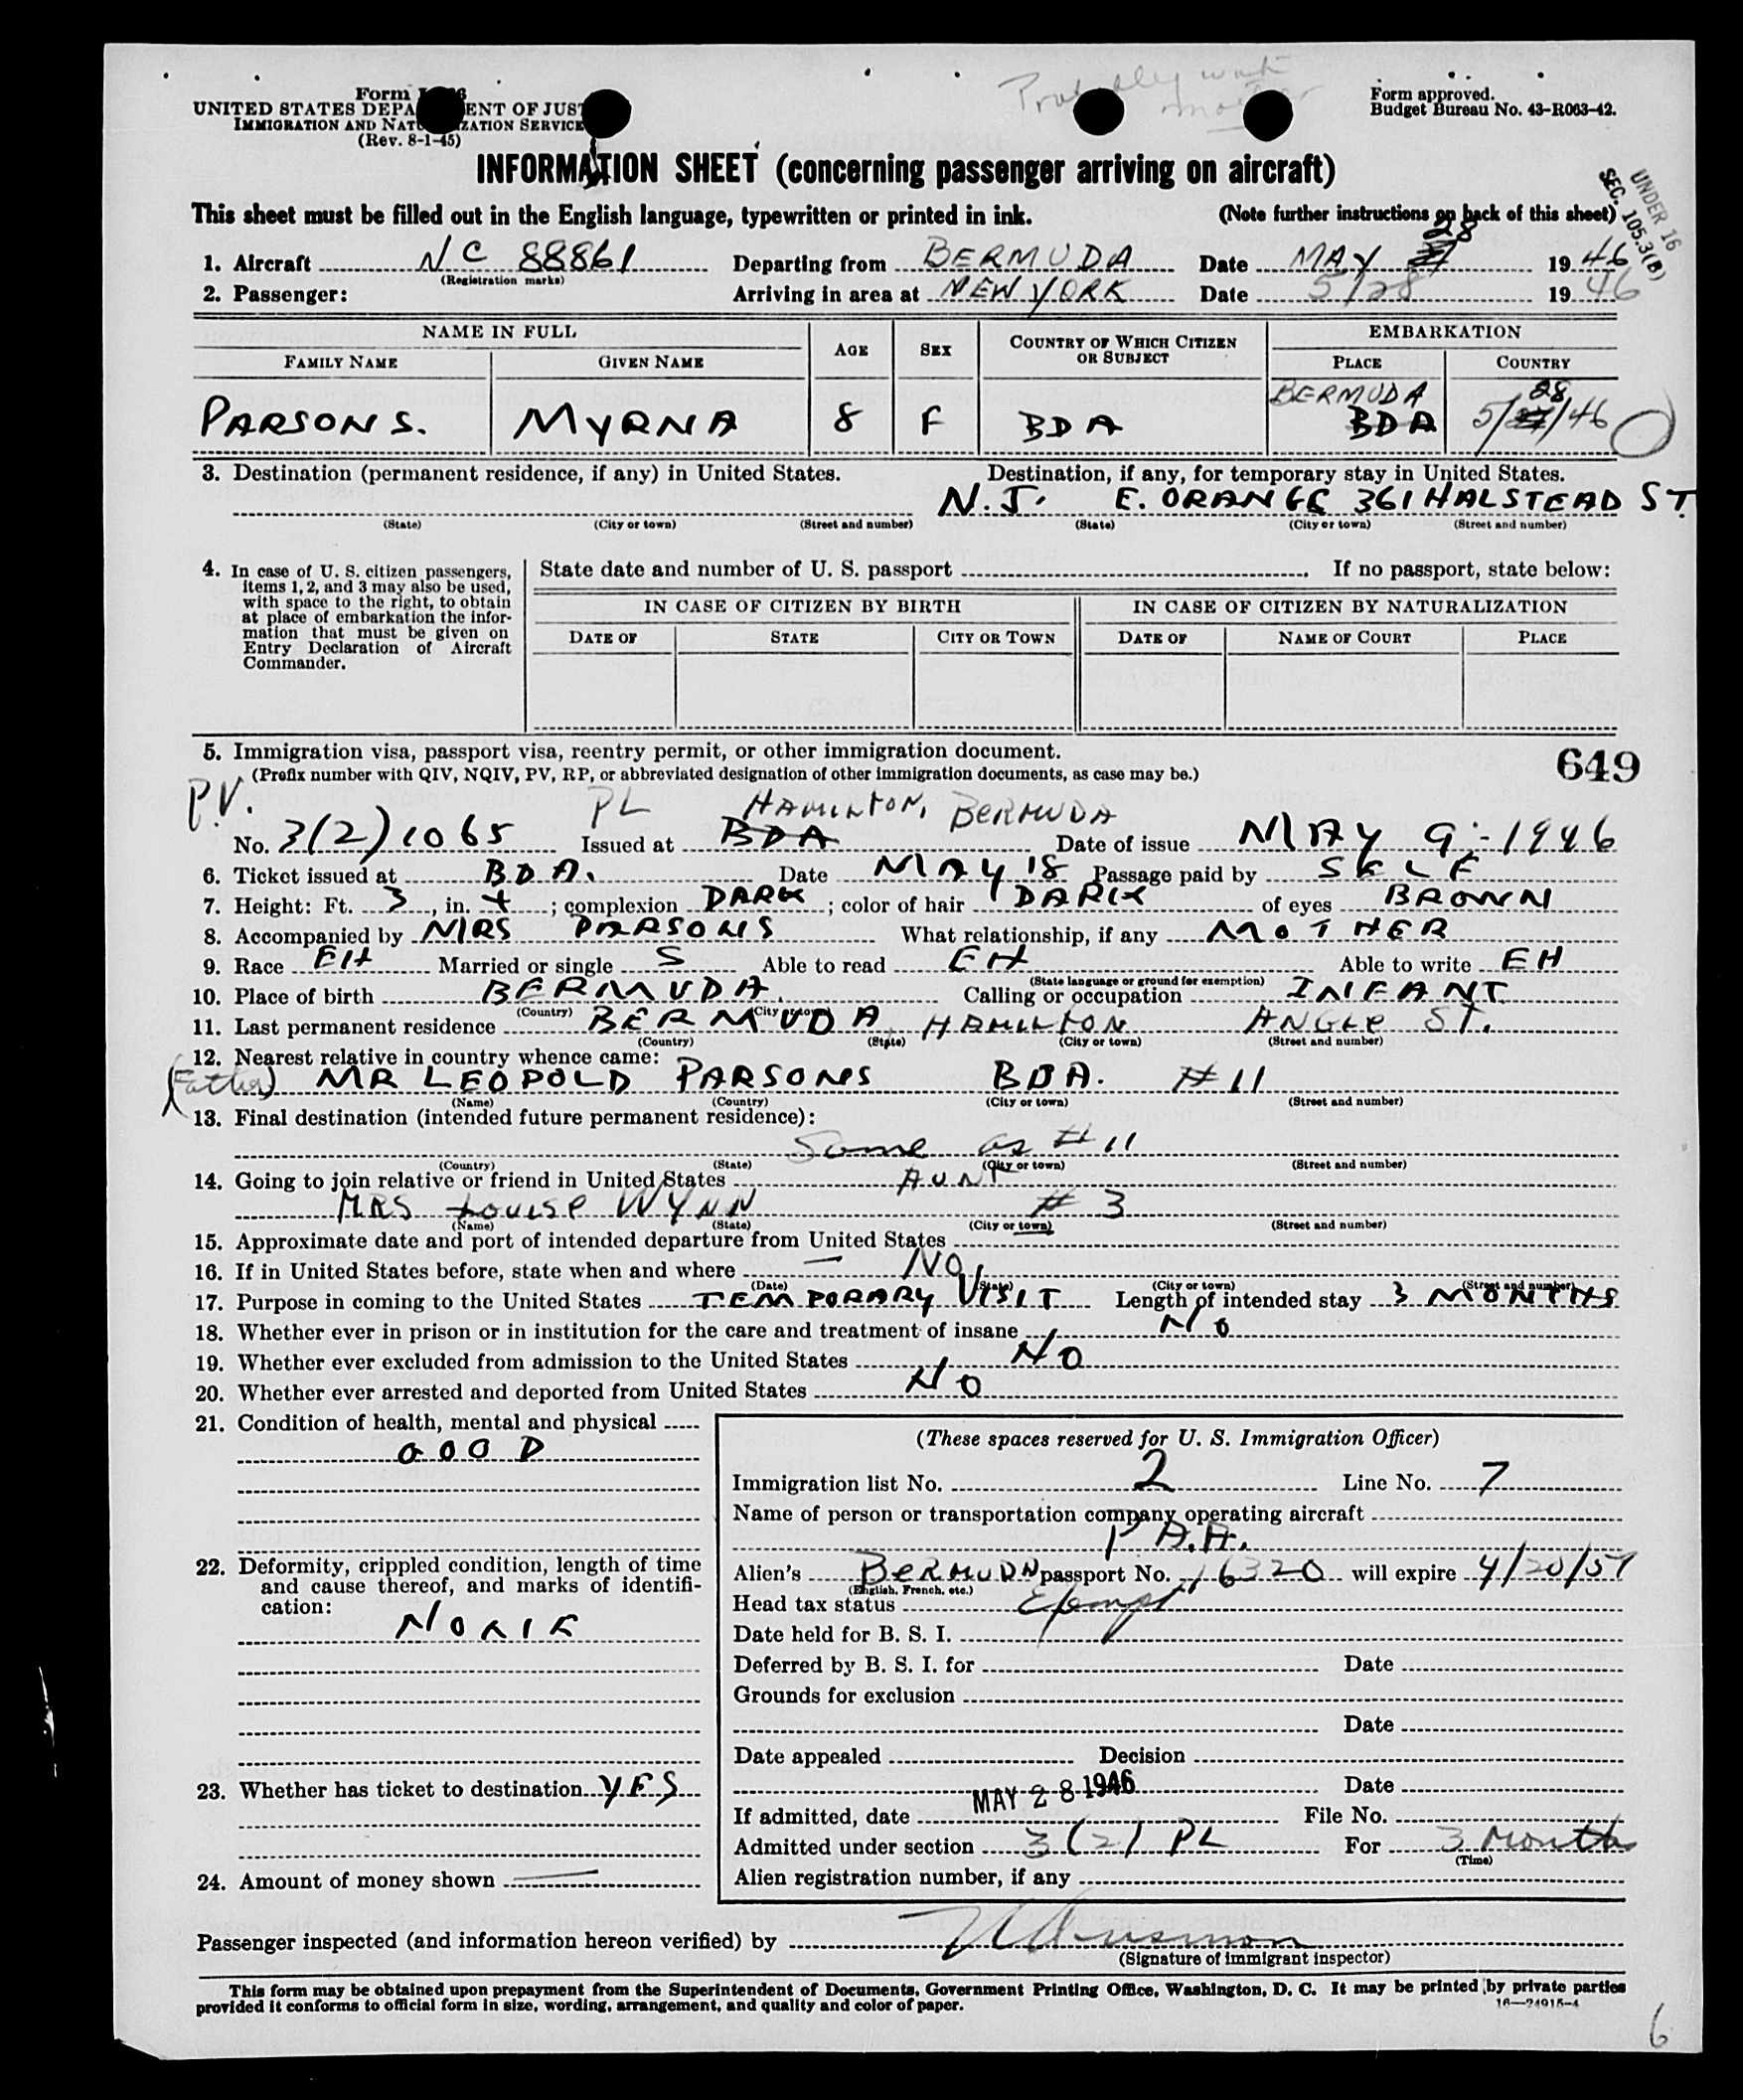 Probably with
mother
Form
Form approved.
UNITED STATES DEPA ENT OF JUST
Budget Bureau No. 43-R063-42.
IMMIGRATION AND NATU ZATION SERVICE
(Rev. 8-1-45)
INFORMATION SHEET (concerning passenger arriving on aircraft)
UNDER 16
SEC. 105.3(B)
This sheet must be filled out in the English language, typewritten or printed in ink. (Note further instructions on back of this sheet)
28
1. Aircraft NC 88861 Departing from BERMUDA Date MAY 1946
(Registration marks)
2. Passenger: Arriving in area at NEW YORK Date 5/28 1946
NAME IN FULL AGE SEX COUNTRY OF WHICH CITIZEN OR SUBJECT EMBARKATION
FAMILY NAME GIVEN NAME PLACE COUNTRY
BERMUDA 28
PARSONS. MYRNA 8 F BDA BDA 5/27/46
3. Destination (permanent residence, if any) in United States. Destination, if any, for temporary stay in United States.
N.J. E. ORANGE 361 HALSTEAD ST.
(State) (City or town) (Street and number) (State) (City or town) (Street and number)
4. In case of U. S. citizen passengers, items 1, 2, and 3 may also be used, with space to the right, to obtain at place of embarkation the information that must be given on Entry Declaration of Aircraft Commander.
State date and number of U. S. passport If no passport, state below:
IN CASE OF CITIZEN BY BIRTH IN CASE OF CITIZEN BY NATURALIZATION
DATE OF STATE CITY OR TOWN DATE OF NAME OF COURT PLACE
5. Immigration visa, passport visa, reentry permit, or other immigration document. 649
(Prefix number with QIV, NQIV, PV, RP, or abbreviated designation of other immigration documents, as case may be.)
P.V. PL HAMILTON, BERMUDA
No. 3(2)1065 Issued at BDA Date of issue MAY 9:-1946
6. Ticket issued at BDA. Date MAY 18 Passage paid by SELF
7. Height: Ft. 3, in. +; complexion DARK; color of hair DARK of eyes BROWN
8. Accompanied by MRS PARSONS What relationship, if any MOTHER
9. Race EH Married or single S Able to read EH Able to write EH
(State language or ground for exemption)
10. Place of birth BERMUDA. Calling or occupation INFANT
(Country) (City or town)
11. Last permanent residence BERMUDA, HAMILTON ANGLE ST.
(Country) (State) (City or town) (Street and number)
12. Nearest relative in country whence came:
(Father) MR LEOPOLD PARSONS BDA. #11
(Name) (Country) (City or town) (Street and number)
13. Final destination (intended future permanent residence):
Same as #11
(Country) (State) (City or town) (Street and number)
14. Going to join relative or friend in United States AUNT
MRS LOUISE WYNN #3
(Name) (State) (City or town) (Street and number)
15. Approximate date and port of intended departure from United States
16. If in United States before, state when and where — NO
(Date) (State) (City or town) (Street and number)
17. Purpose in coming to the United States TEMPORARY VISIT Length of intended stay 3 MONTHS
18. Whether ever in prison or in institution for the care and treatment of insane No
19. Whether ever excluded from admission to the United States NO
20. Whether ever arrested and deported from United States NO
21. Condition of health, mental and physical
GOOD
22. Deformity, crippled condition, length of time and cause thereof, and marks of identification:
NONE
23. Whether has ticket to destination YES
24. Amount of money shown —
(These spaces reserved for U. S. Immigration Officer)
Immigration list No. 2 Line No. 7
Name of person or transportation company operating aircraft
P.A.A.
Alien's BERMUDA passport No. 16320 will expire 4/20/51
(English, French, etc.)
Head tax status Exempt
Date held for B. S. I.
Deferred by B. S. I. for Date
Grounds for exclusion
Date
Date appealed Decision
Date
If admitted, date MAY 28 1946 File No.
Admitted under section 3(2) PL For 3 Months
(Time)
Alien registration number, if any
Passenger inspected (and information hereon verified) by
(Signature of immigrant inspector)
This form may be obtained upon prepayment from the Superintendent of Documents, Government Printing Office, Washington, D. C. It may be printed by private parties
provided it conforms to official form in size, wording, arrangement, and quality and color of paper. 16—24915-4
6